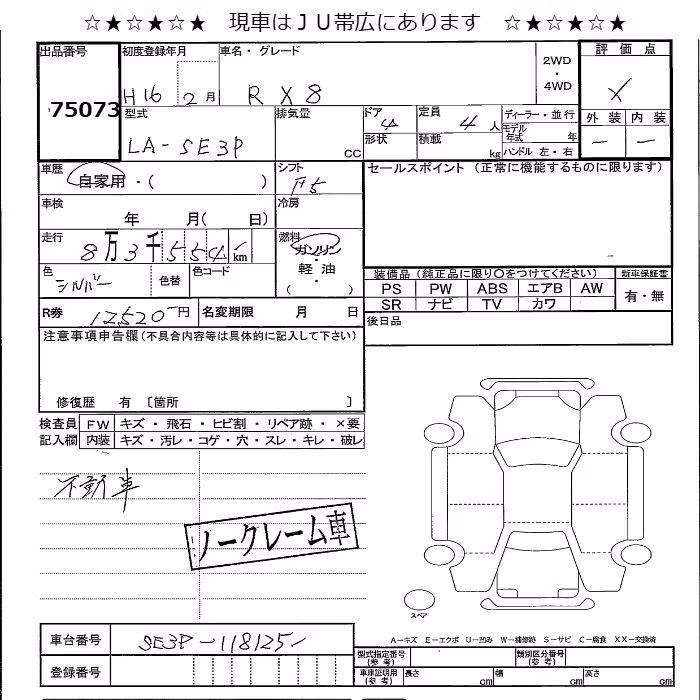 ☆★☆★☆★ 現車はＪＵ帯広にあります ☆★☆★☆★
出品番号 初度登録年月 車名・グレード 2WD・4WD 評価点
75073 H16 2月 RX8 ✓
型式 LA-SE3P 排気量 cc ドア 4 定員 4人 ディーラー・並行 外装 内装
形状 積載 kg モデル年式 年 － －
ハンドル 左・右
車歴 自家用・( ) シフト F5 セールスポイント (正常に機能するものに限ります)
車検 年 月( 日) 冷房
走行 8万3千554km 燃料 ガソリン・軽油 ( )
色 シルバー 色替 色コード
装備品 (純正品に限り○をつけてください) 新車保証書
PS PW ABS エアB AW 有・無
SR ナビ TV カワ
R券 12520円 名変期限 月 日 後日品
注意事項申告欄(不具合内容等は具体的に記入して下さい)
修復歴 有 〔箇所 〕
検査員記入欄 FW キズ・飛石・ヒビ割・リペア跡・×要
内装 キズ・汚レ・コゲ・穴・スレ・キレ・破レ
不動車
ノークレーム車
スペア
A－キズ E－エクボ U－凹み W－補修跡 S－サビ C－腐食 XX－交換済
車台番号 SE3P-118125
登録番号
型式指定番号(参考) 類別区分番号(参考)
車庫証明用(参考) 長さ cm 幅 cm 高さ cm